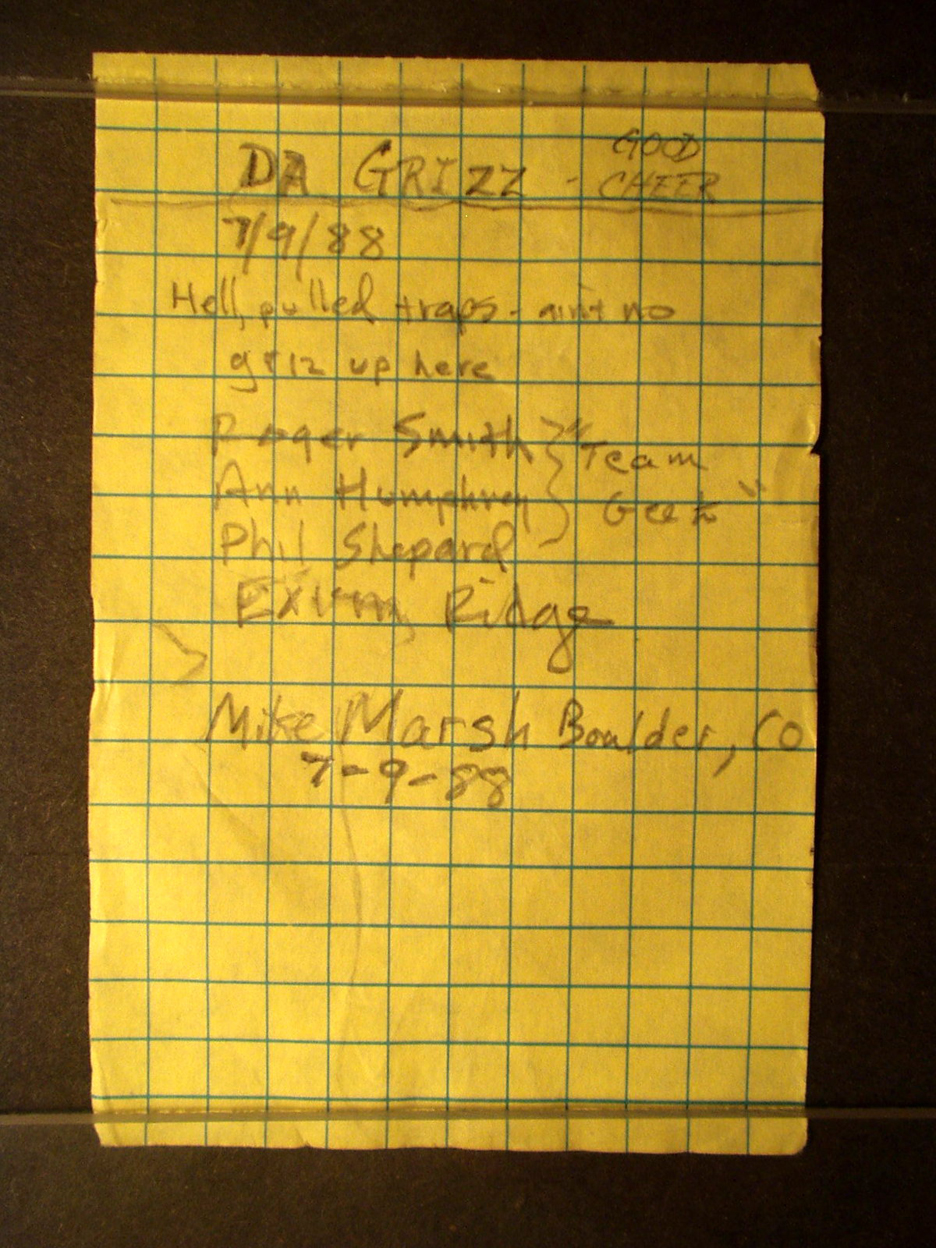 DA GRIZZ - GOOD CHEER
7/9/88
Hell, pulled traps - ain't no
griz up here
Roger Smith } "Team
Ann Humphrey } Geek"
Phil Shepard
Exum Ridge
Mike Marsh Boulder, CO
7-9-88